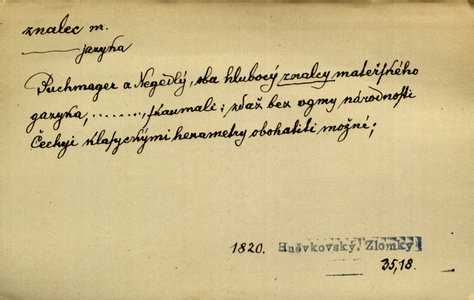 znalec m.
——— jazyka
Puchmager a Negedlý, oba hlubocý znalcy mateřského
gazyka, ........, skaumali; zdaž bez ugmy národnosti
Čechyi klasyckými hexametry obohatiti možné;
1820. Hněvkovský. Zlomky
35,18.